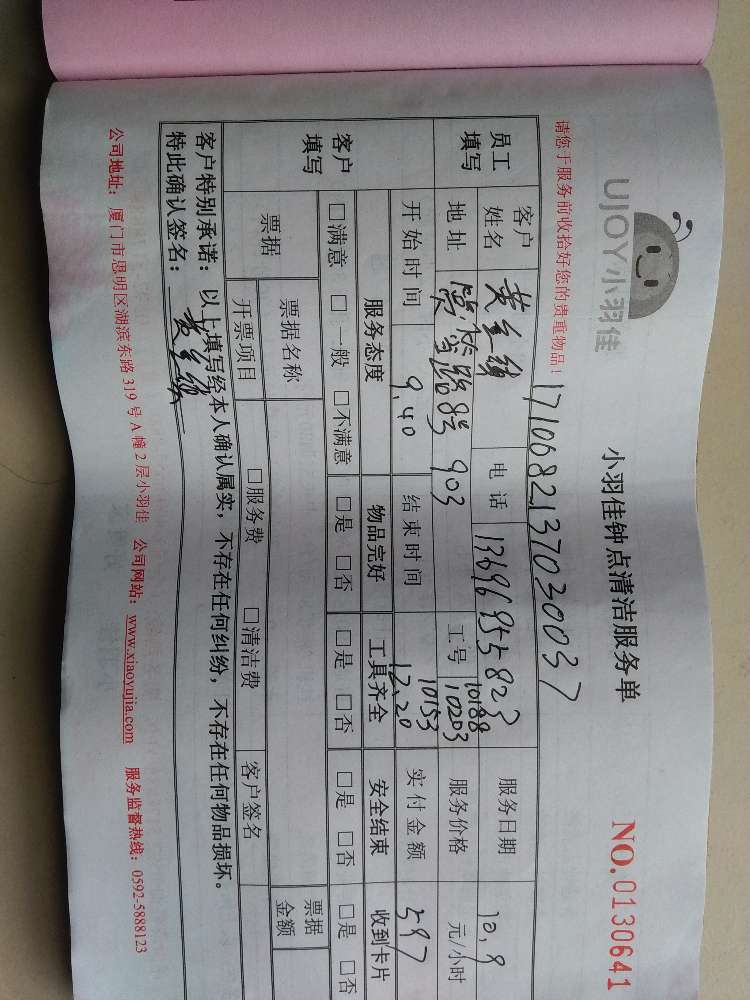 UJOY小羽佳
小羽佳钟点清洁服务单
NO.0130641
请您于服务前收拾好您的贵重物品！
1710682137030037
员工填写 客户姓名 黄 电话 13696955823 服务日期 10.9
地址 路8号 903 工号 10188 10203 10153 服务价格 元/小时
开始时间 9.40 结束时间 12.20 实付金额 597
客户填写 服务态度 物品完好 工具齐全 安全结束 收到卡片
□满意 □一般 □不满意 □是 □否 □是 □否 □是 □否 □是 □否
票据 票据名称 票据金额
开票项目 □服务费 □清洁费 客户签名
客户特别承诺：以上填写经本人确认属实，不存在任何纠纷，不存在任何物品损坏。
特此确认签名：黄
公司地址：厦门市思明区湖滨东路319号A幢2层小羽佳 公司网站：www.xiaoyujia.com 服务监督热线：0592-5888123